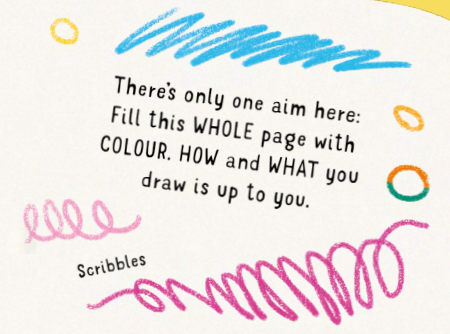 There's only one aim here:
Fill this WHOLE page with
COLOUR. HOW and WHAT you
draw is up to you.
Scribbles